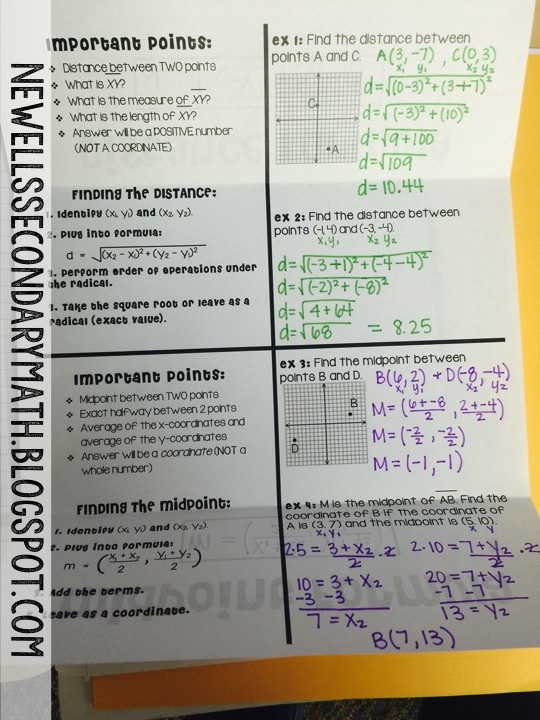 NEWELLSSECONDARYMATH.BLOGSPOT.COM
Important Points:
❖ Distance between TWO points
❖ What is XY?
❖ What is the measure of XY?
❖ What is the length of XY?
❖ Answer will be a POSITIVE number
(NOT A COORDINATE)
Finding the Distance:
1. Identify (x₁, y₁) and (x₂, y₂).
2. Plug into formula:
d = √(x₂ − x₁)² + (y₂ − y₁)²
3. Perform order of operations under
the radical.
3. Take the square root or leave as a
radical (exact value).
ex 1: Find the distance between
points A and C. A(3,-7), C(0,3)
x₁ y₁ x₂ y₂
C
A
d=√(0-3)²+(3+7)²
d=√(-3)²+(10)²
d=√9+100
d=√109
d= 10.44
ex 2: Find the distance between
points (-1,4) and (-3,-4).
x₁ y₁ x₂ y₂
d=√(-3+1)²+(-4-4)²
d=√(-2)²+(-8)²
d=√4+64
d=√68 = 8.25
Important Points:
❖ Midpoint between TWO points
❖ Exact halfway between 2 points
❖ Average of the x-coordinates and
average of the y-coordinates
❖ Answer will be a coordinate (NOT a
whole number)
Finding the Midpoint:
1. Identify (x₁, y₁) and (x₂, y₂).
2. Plug into formula:
m = (x₁ + x₂/2, y₁ + y₂/2)
Add the terms.
Leave as a coordinate.
ex 3: Find the midpoint between
points B and D. B(6,2) + D(-8,-4)
x₁ y₁ x₂ y₂
B
D
M=(6+-8/2, 2+-4/2)
M=(-2/2, -2/2)
M=(-1,-1)
ex 4: M is the midpoint of AB. Find the
coordinate of B if the coordinate of
A is (3, 7) and the midpoint is (5, 10).
x₁ y₁ x y
2·5 = 3+x₂/2 ·2 2·10 = 7+y₂/2 ·2
10 = 3 + x₂ 20 = 7+y₂
-3 -3 -7 -7
7 = x₂ 13 = y₂
B(7,13)